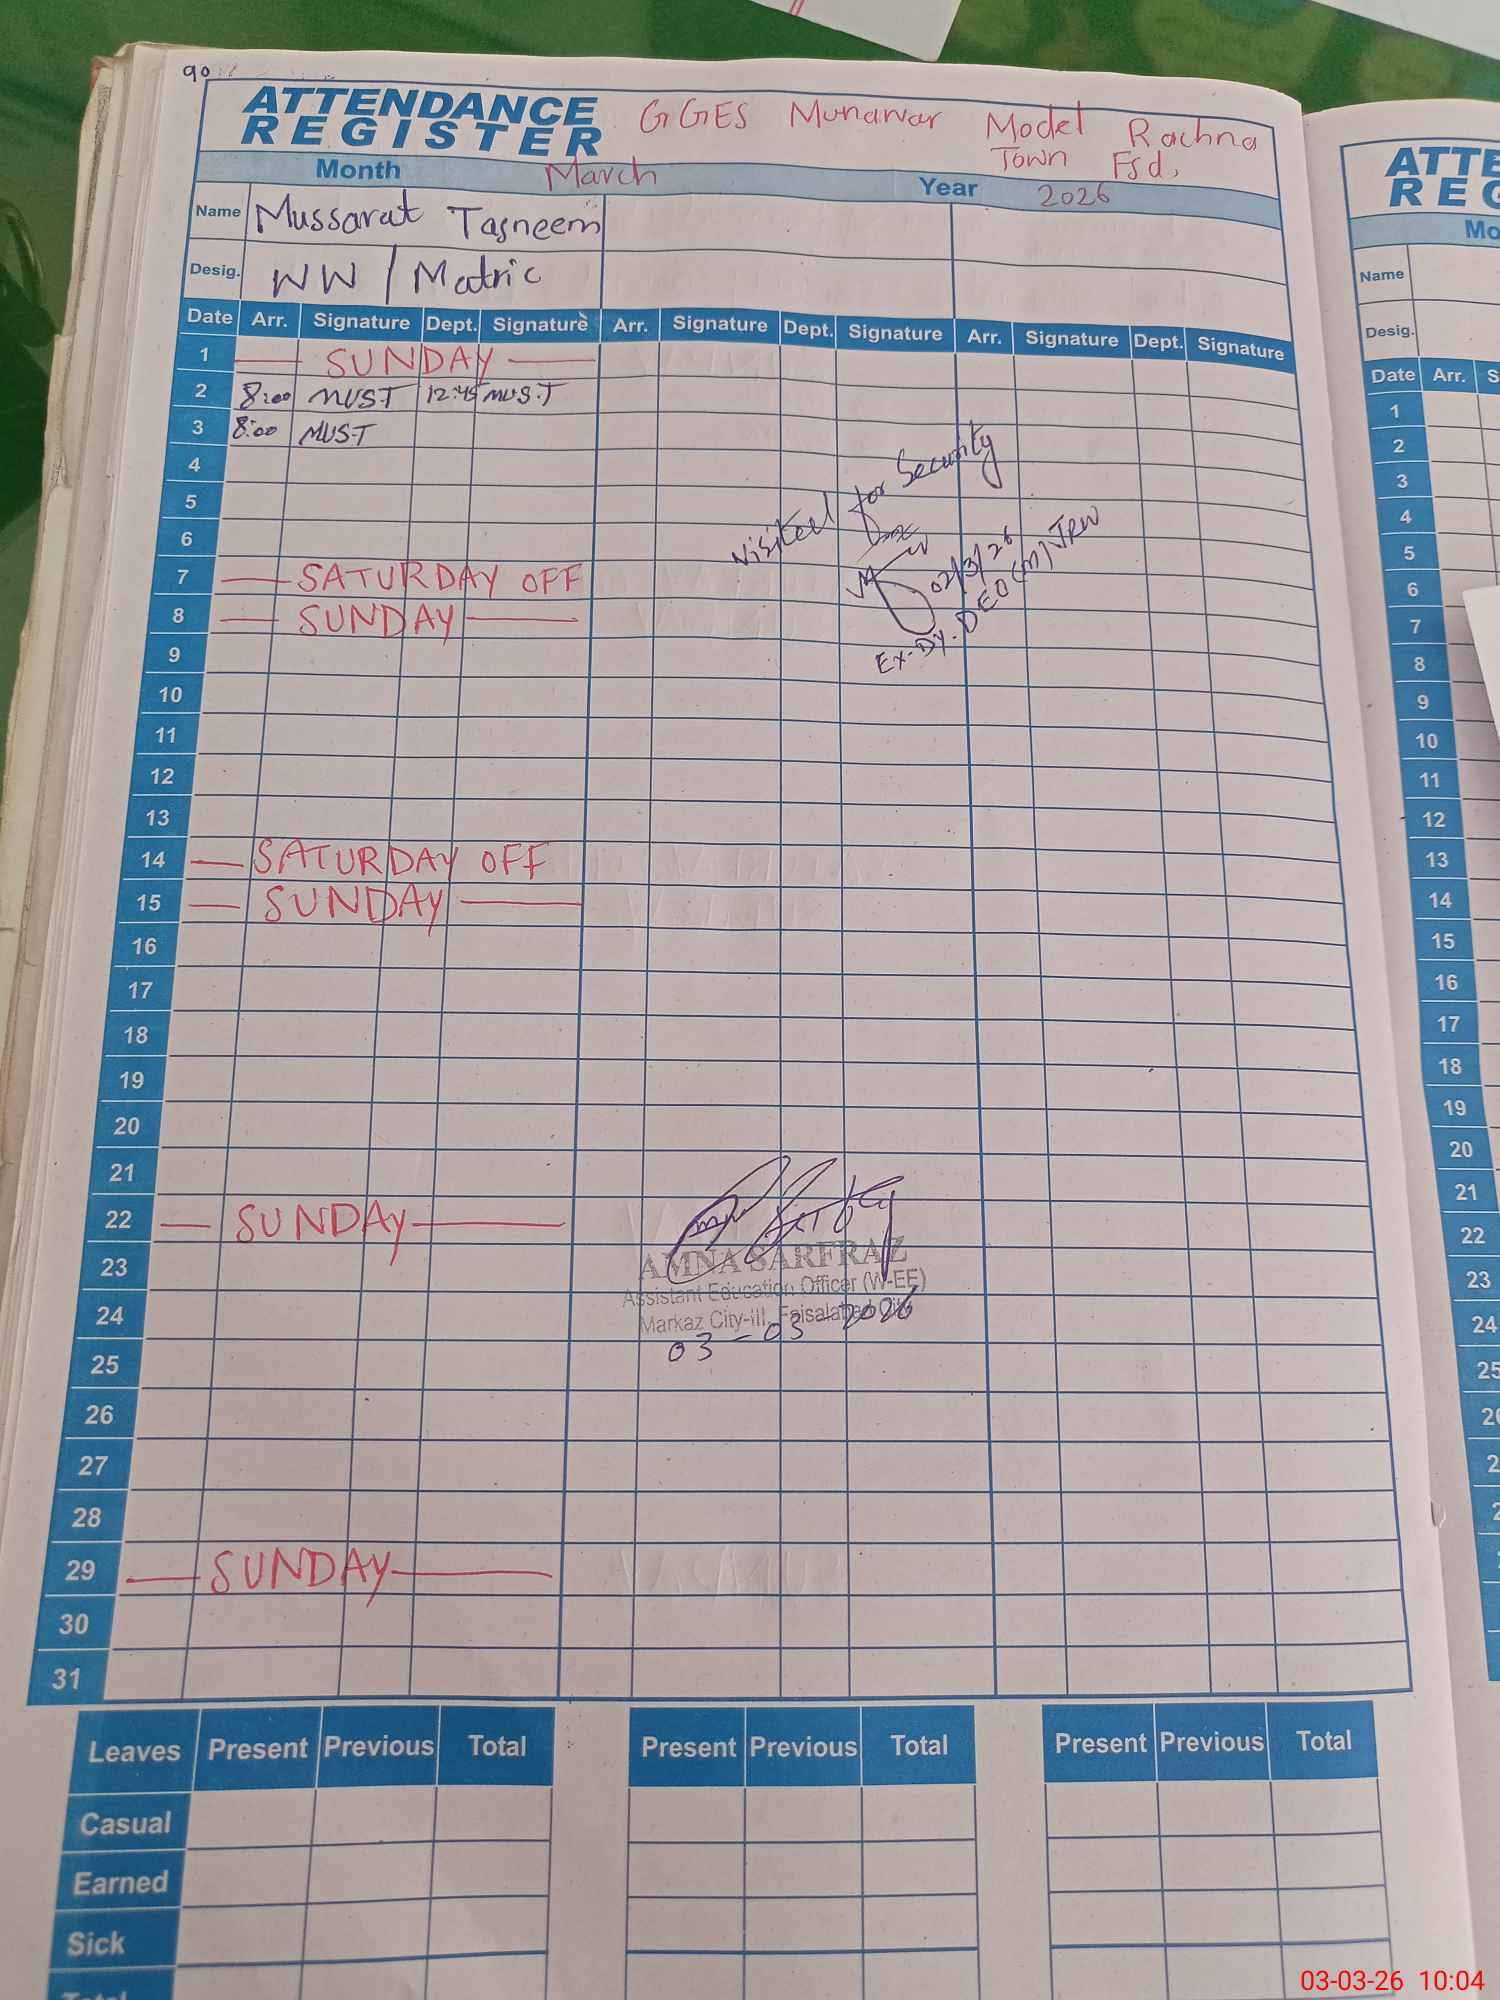 90
ATTENDANCE REGISTER
GGES Munawar Model Rachna Town Fsd,
Month March Year 2026
Name Mussarat Tasneem
Desig. WW / Matric
Date Arr. Signature Dept. Signature Arr. Signature Dept. Signature Arr. Signature Dept. Signature
1 SUNDAY
2 8:00 MUST 12:45 MUS.T
3 8:00 MUST
4
5
6
7 SATURDAY OFF
8 SUNDAY
9
10
11
12
13
14 SATURDAY OFF
15 SUNDAY
16
17
18
19
20
21
22 SUNDAY
23
24
25
26
27
28
29 SUNDAY
30
31
Visited for Security
02/3/26
Ex-Dy. DEO (M) JRW
AMNA SARFRAZ
Assistant Education Officer (W-EE)
Markaz City-III, Faisalabad
03-03-2026
Leaves Present Previous Total Present Previous Total Present Previous Total
Casual
Earned
Sick
Total
ATTE
REG
Mo
Name
Desig.
Date Arr. S
1
2
3
4
5
6
7
8
9
10
11
12
13
14
15
16
17
18
19
20
21
22
23
24
25
03-03-26 10:04